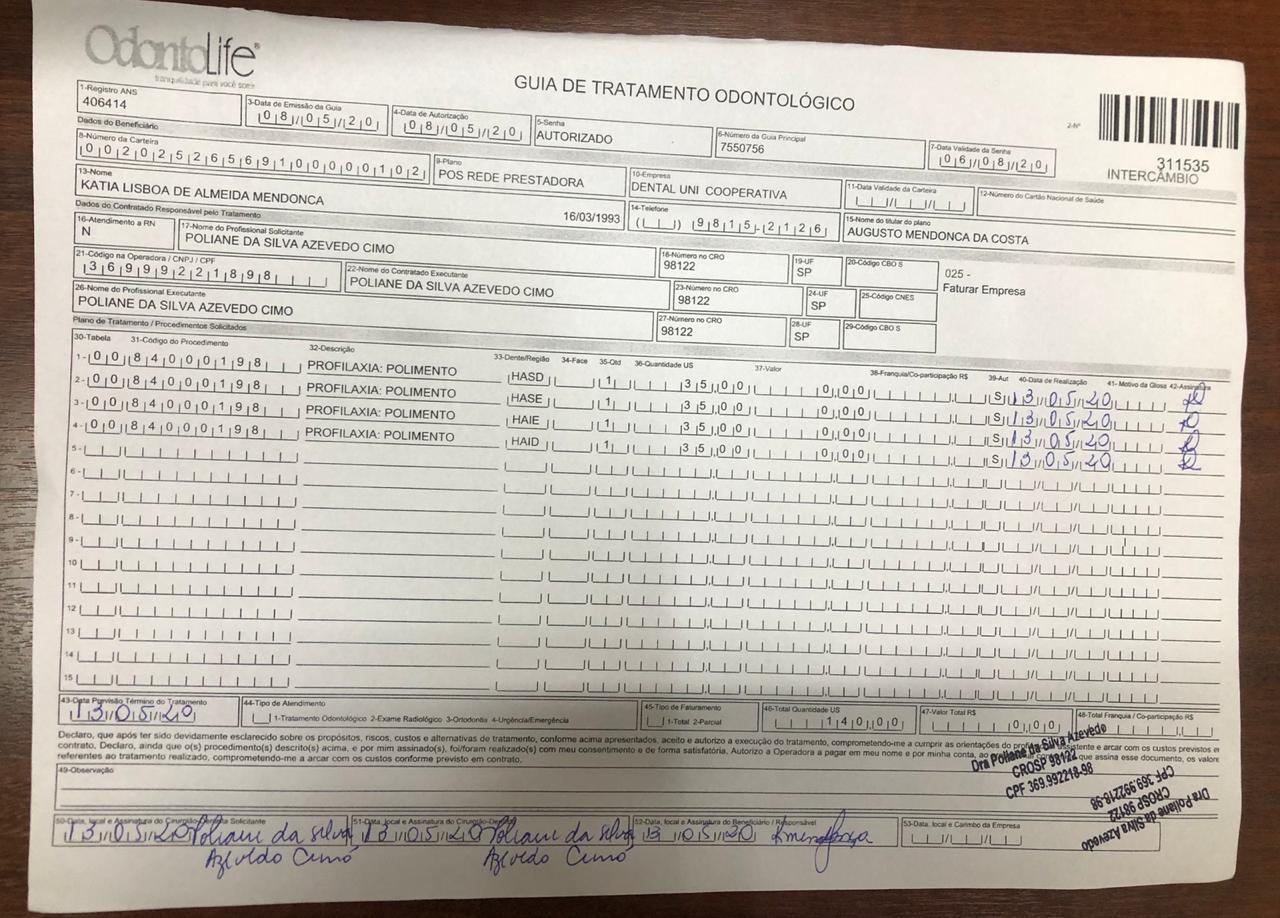 OdontoLife®
tranquilidade para você sorrir
GUIA DE TRATAMENTO ODONTOLÓGICO
2-Nº
311535
INTERCÂMBIO
1-Registro ANS 3-Data de Emissão da Guia 4-Data de Autorização 5-Senha 6-Número da Guia Principal 7-Data Validade da Senha
406414 08/05/20 08/05/20 AUTORIZADO 7550756 06/08/20
Dados do Beneficiário
8-Número da Carteira 9-Plano 10-Empresa 11-Data Validade da Carteira 12-Número do Cartão Nacional de Saúde
00202526569100000102 POS REDE PRESTADORA DENTAL UNI COOPERATIVA
13-Nome 14-Telefone 15-Nome do titular do plano
KATIA LISBOA DE ALMEIDA MENDONCA 16/03/1993 ( ) 9815-2126 AUGUSTO MENDONCA DA COSTA
Dados do Contratado Responsável pelo Tratamento
16-Atendimento a RN 17-Nome do Profissional Solicitante 18-Número no CRO 19-UF 20-Código CBO S
N POLIANE DA SILVA AZEVEDO CIMO 98122 SP
025 -
Faturar Empresa
21-Código na Operadora / CNPJ / CPF 22-Nome do Contratado Executante 23-Número no CRO 24-UF 25-Código CNES
36999221898 POLIANE DA SILVA AZEVEDO CIMO 98122 SP
26-Nome do Profissional Executante 27-Número no CRO 28-UF 29-Código CBO S
POLIANE DA SILVA AZEVEDO CIMO 98122 SP
Plano de Tratamento / Procedimentos Solicitados
30-Tabela 31-Código do Procedimento 32-Descrição 33-Dente/Região 34-Face 35-Qtd 36-Quantidade US 37-Valor 38-Franquia/Co-participação R$ 39-Aut 40-Data de Realização 41- Motivo da Glosa 42-Assinatura
1- 00 84000198 PROFILAXIA: POLIMENTO HASD 1 35,00 0,00 S 13/05/20
2- 00 84000198 PROFILAXIA: POLIMENTO HASE 1 35,00 0,00 S 13/05/20
3- 00 84000198 PROFILAXIA: POLIMENTO HAIE 1 35,00 0,00 S 13/05/20
4- 00 84000198 PROFILAXIA: POLIMENTO HAID 1 35,00 0,00 S 13/05/20
5-
6-
7-
8-
9-
10
11
12
13
14
15
43-Data Previsão Término do Tratamento 44-Tipo de Atendimento 45-Tipo de Faturamento 46-Total Quantidade US 47-Valor Total R$ 48-Total Franquia / Co-participação R$
13/05/20 1-Tratamento Odontológico 2-Exame Radiológico 3-Ortodontia 4-Urgência/Emergência 1-Total 2-Parcial 140,00 0,00
Declaro, que após ter sido devidamente esclarecido sobre os propósitos, riscos, custos e alternativas de tratamento, conforme acima apresentados, aceito e autorizo a execução do tratamento, comprometendo-me a cumprir as orientações do assistente e arcar com os custos previstos em
contrato. Declaro, ainda que o(s) procedimento(s) descrito(s) acima, e por mim assinado(s), foi/foram realizado(s) com meu consentimento e de forma satisfatória. Autorizo a Operadora a pagar em meu nome e por minha conta, ao que assina esse documento, os valores
referentes ao tratamento realizado, comprometendo-me a arcar com os custos conforme previsto em contrato.
Dra Poliane da Silva Azevedo
CROSP 98122
CPF 369.992218-98
49-Observação
Dra Poliane da Silva Azevedo
CROSP 98122
CPF 369.992218-98
50-Data, local e Assinatura do Cirurgião-Dentista Solicitante 51-Data, local e Assinatura do Cirurgião-Dentista 52-Data, local e Assinatura do Beneficiário / Responsável 53-Data, local e Carimbo da Empresa
13/05/20 Poliane da Silva 13/05/20 Poliane da Silva 13/05/20 Kmendonça
Azevedo Cimó Azevedo Cimó